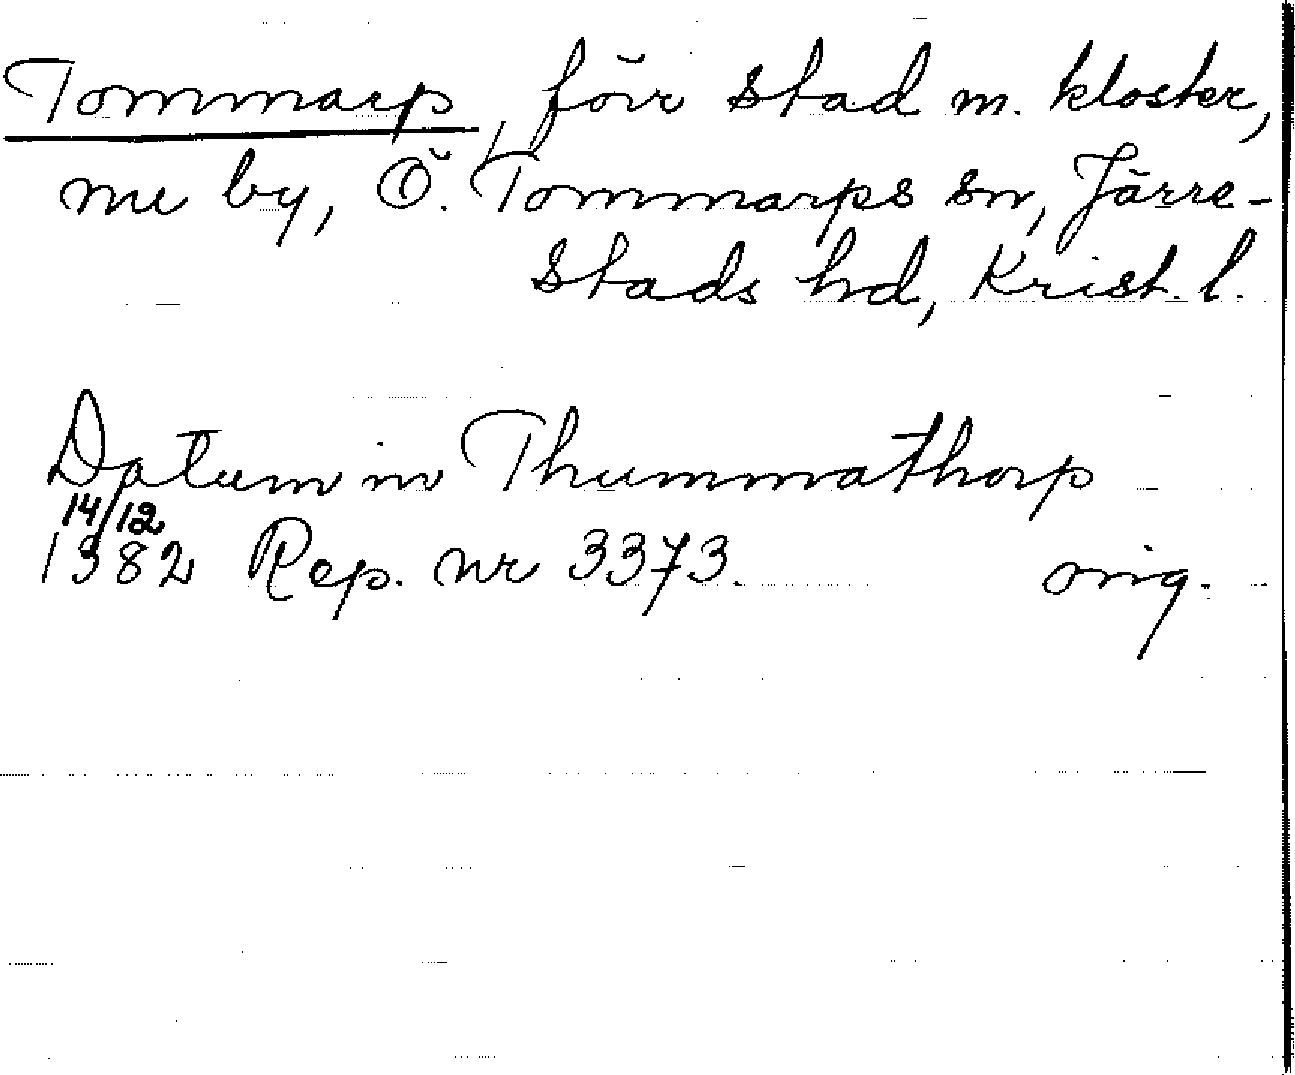 Tommarp, förr stad m. kloster,
nu by, Ö. Tommarps sn, Järre-
stads hd, Krist. l.
Datum in Thummathorp
14/12
1382 Rep. nr 3373. orig.